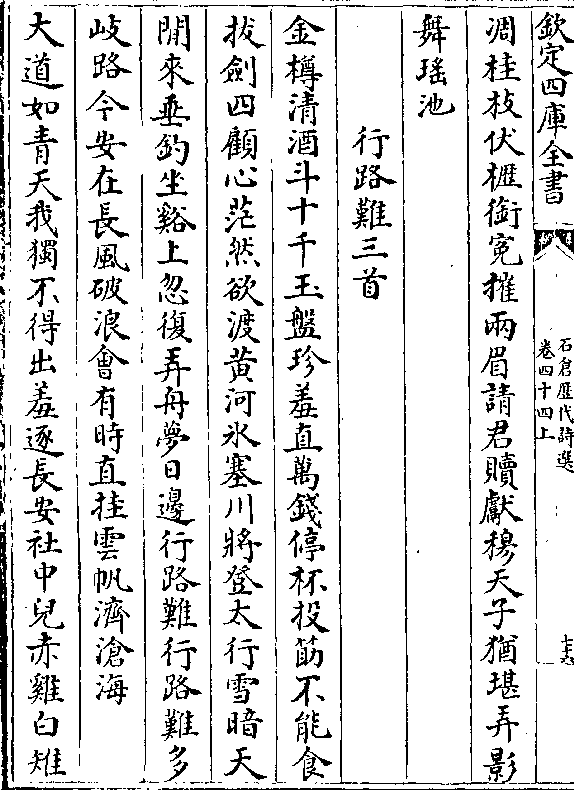 欽定四庫全書
石倉歷代詩選
卷四十四上
凋桂枝伏櫪銜寃摧兩眉請君贖獻穆天子猶堪弄影
舞瑶池
行路難三首
金樽清酒斗十千玉盤珍羞直萬錢停杯投筯不能食
拔劍四顧心茫然欲渡黄河氷塞川將登太行雪暗天
閒來垂釣坐谿上忽復弄舟夢日邊行路難行路難多
岐路今安在長風破浪會有時直挂雲帆濟滄海
大道如青天我獨不得出羞逐長安社中兒赤雞白雉